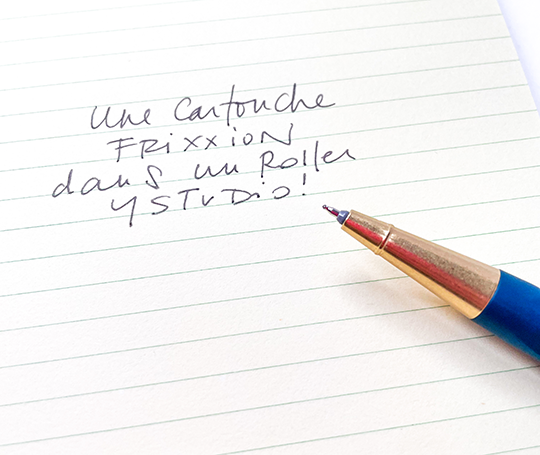 une cartouche
FRiXXiON
dans un Roller
YSTuDio!